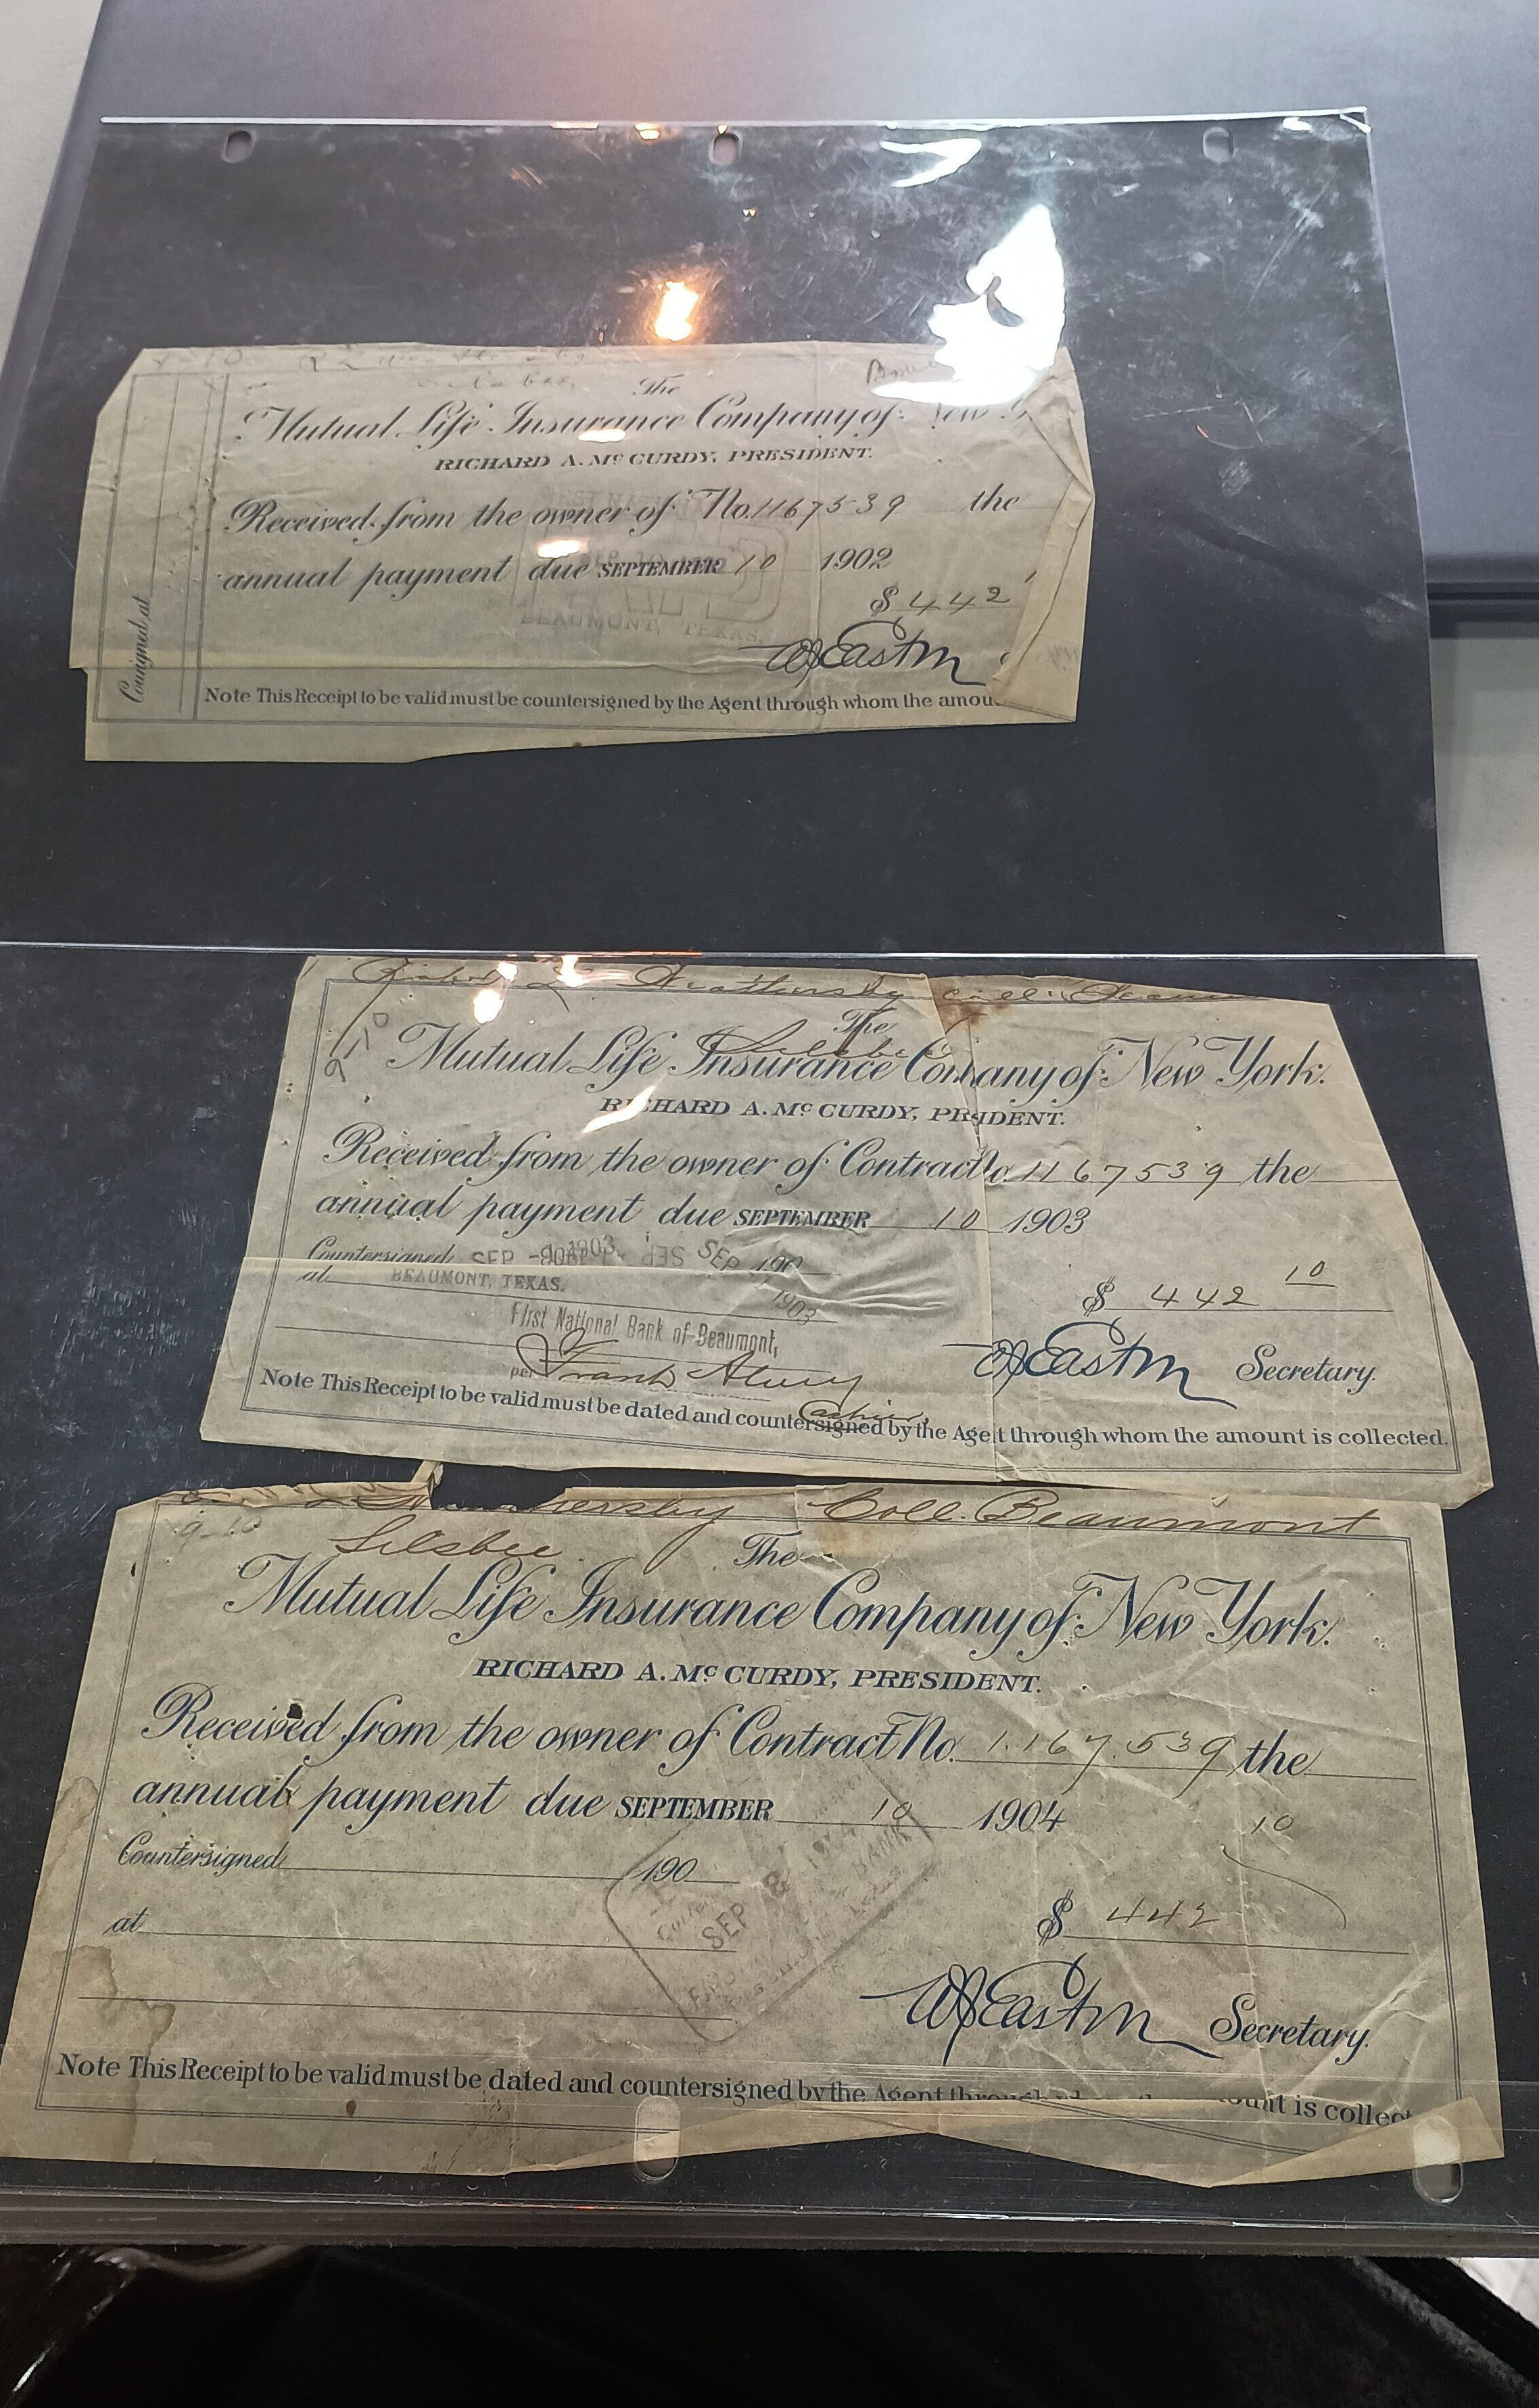 The
Mutual Life Insurance Company of New
RICHARD A. Mc CURDY, PRESIDENT.
Received from the owner of No. 1167539 the
annual payment due SEPTEMBER 10 1902
BEAUMONT, TEXAS.
$ 442
WJEaston
Note This Receipt to be valid must be countersigned by the Agent through whom the amou
Weathersby Coll:
9-10
The
Silsbee
Mutual Life Insurance Company of New York.
RICHARD A. Mc CURDY, PRSIDENT.
Received from the owner of Contract No. 1167539 the
annual payment due SEPTEMBER 10 1903
Countersigned SEP 1903 SEP 190
at BEAUMONT, TEXAS. 1903
10
$ 442
First National Bank of Beaumont,
per Frank Alvey
Cashier.
WJEaston Secretary.
Note This Receipt to be valid must be dated and countersigned by the Agent through whom the amount is collected.
Coll. Beaumont
9-10
Silsbee
The
Mutual Life Insurance Company of New York.
RICHARD A. Mc CURDY, PRESIDENT.
Received from the owner of Contract No. 1.167.539 the
annual payment due SEPTEMBER 10 1904
10
Countersigned 190
SEP 8
at
$ 442
WJEaston Secretary.
Note This Receipt to be valid must be dated and countersigned by the Agent through